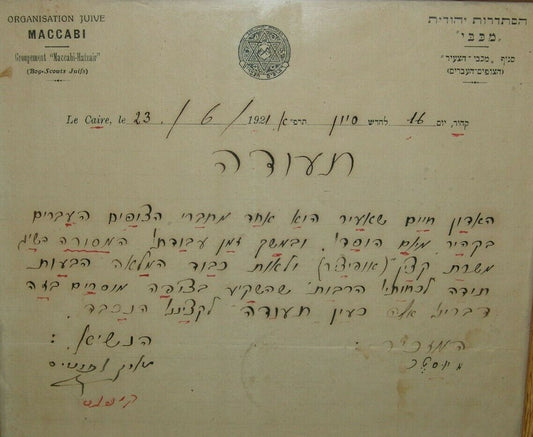 ORGANISATION JUIVE
MACCABI
Groupement "Maccabi-Hatzair"
(Boy-Scouts Juifs)
הסתדרות יהודית
"מכבי"
סניף "מכבי הצעיר"
(הצופים העברים)
Le Caire, le 23 / 6 / 1921
קהיר, יום 16 לחדש סיון תרפ"א
תעודה
האדון חיים הוא אחד מחברי הצופים העברים
בקהיר מאם הוסדי ובמשך זמן עבודתו המסורה השיג
משרת קצין (אופיציר) ולאות כבוד המלאה הבעות
תודה לכחותיו הרבות שהשקיע בצופה מוסרים בזה
דברינו אלה כעין תעודה לקציננו הנכבד.
המזכיר :
הנשיא :